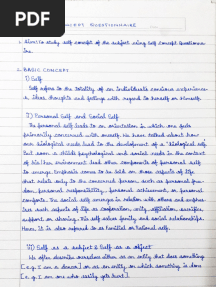 PDF
CONCEPT QUESTIONNAIRE
to study self concept of the subject using Self Concept Questionnaire
BASIC CONCEPT
i) Self
Self refers to the totality of an individual's conscious experience
ideas, thoughts and feelings with regard to herself or himself.
ii) Personal Self and Social Self
The personal self leads to an orientation in which one feels
primarily concerned with oneself. We have talked about how
our biological needs lead to the development of a 'biological self.
But soon a child's psychological and social needs in the context
of his/her environment lead other components of personal self
to emerge. Emphasis comes to be laid on those aspects of life
that relate only to the concerned person, such as personal free
dom, personal responsibility, personal achievement, or personal
comforts. The social self emerges in relation with others and empha
sises such aspects of life as cooperation, unity, affiliation, sacrifice,
support or sharing. This self values family and social relationships.
Hence, it is also referred to as familial or relational self.
iii) Self as a subject & Self as a object
We often describe ourselves either as an entity that does something
(e.g. I am a dancer) or as an entity on which something is done
(e.g. I am one who easily gets hurt).